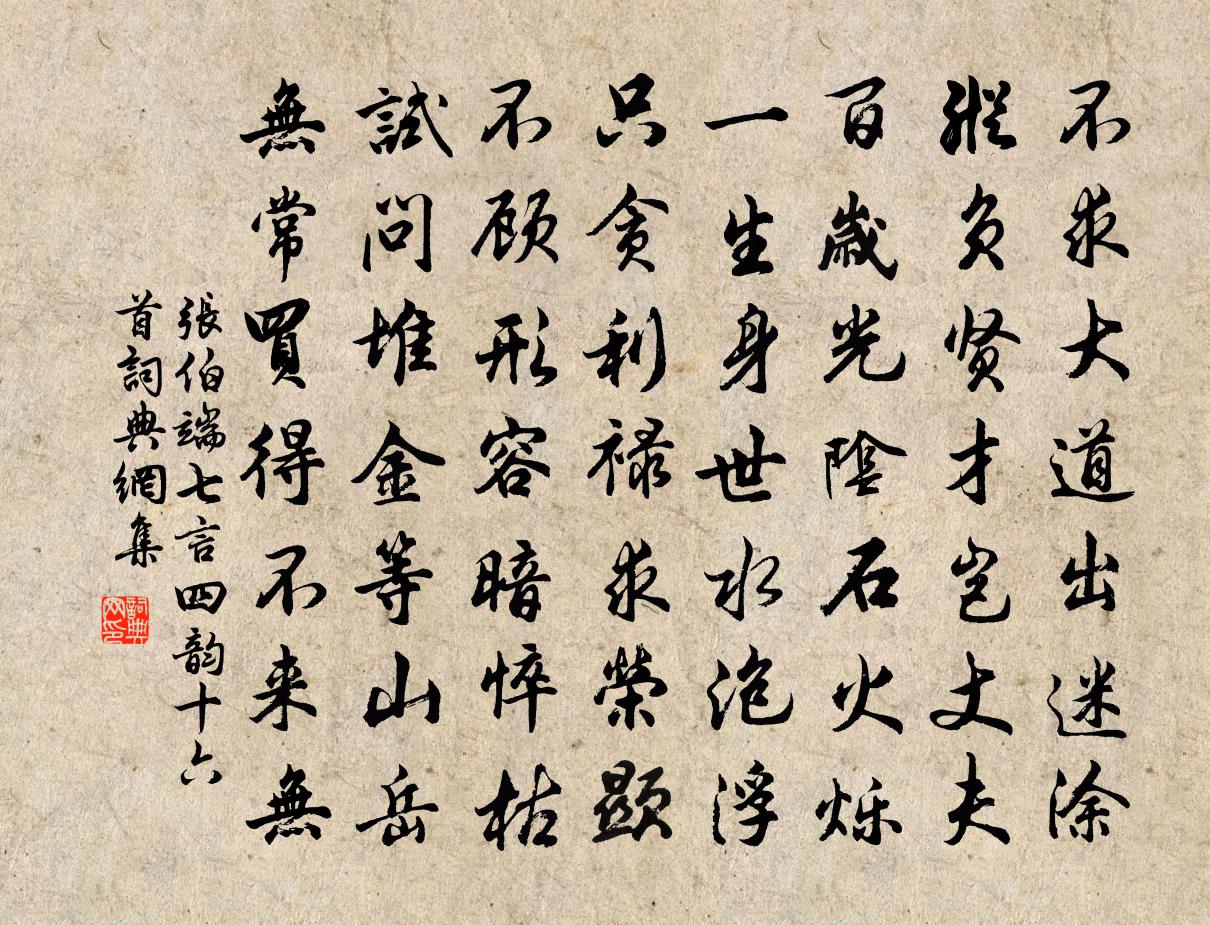 不求大道出迷涂
縱负贤才岂丈夫
百歲光陰石火烁
一生身世水泡浮
只贪利禄求榮顯
不顾形容暗悴枯
試問堆金等山岳
無常買得不来無
張伯端七言四韵十六
首詞典網集
詞典网印